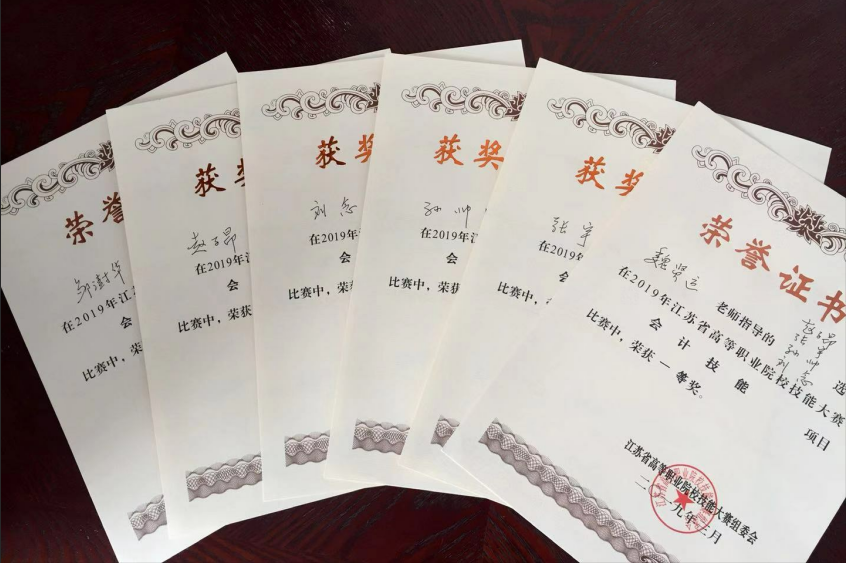 荣誉
邹澍华
在2019年江苏
会
比赛中，荣获
获奖
赵子昂
在2019年江
会
比赛中，荣获
获奖
刘志
在2019年
会
比赛中，荣
获奖
孙帅
在2019年江
会
比赛中，荣获
获奖
张宇
在2019年
会
比赛中，
荣誉证书
魏贤运 老师指导的 赵子昂 张宇 孙帅 刘志 选
在2019年江苏省高等职业院校技能大赛
会计技能 项目
比赛中，荣获一等奖。
江苏省高等职业院校技能大赛组委会
二〇一九年三月